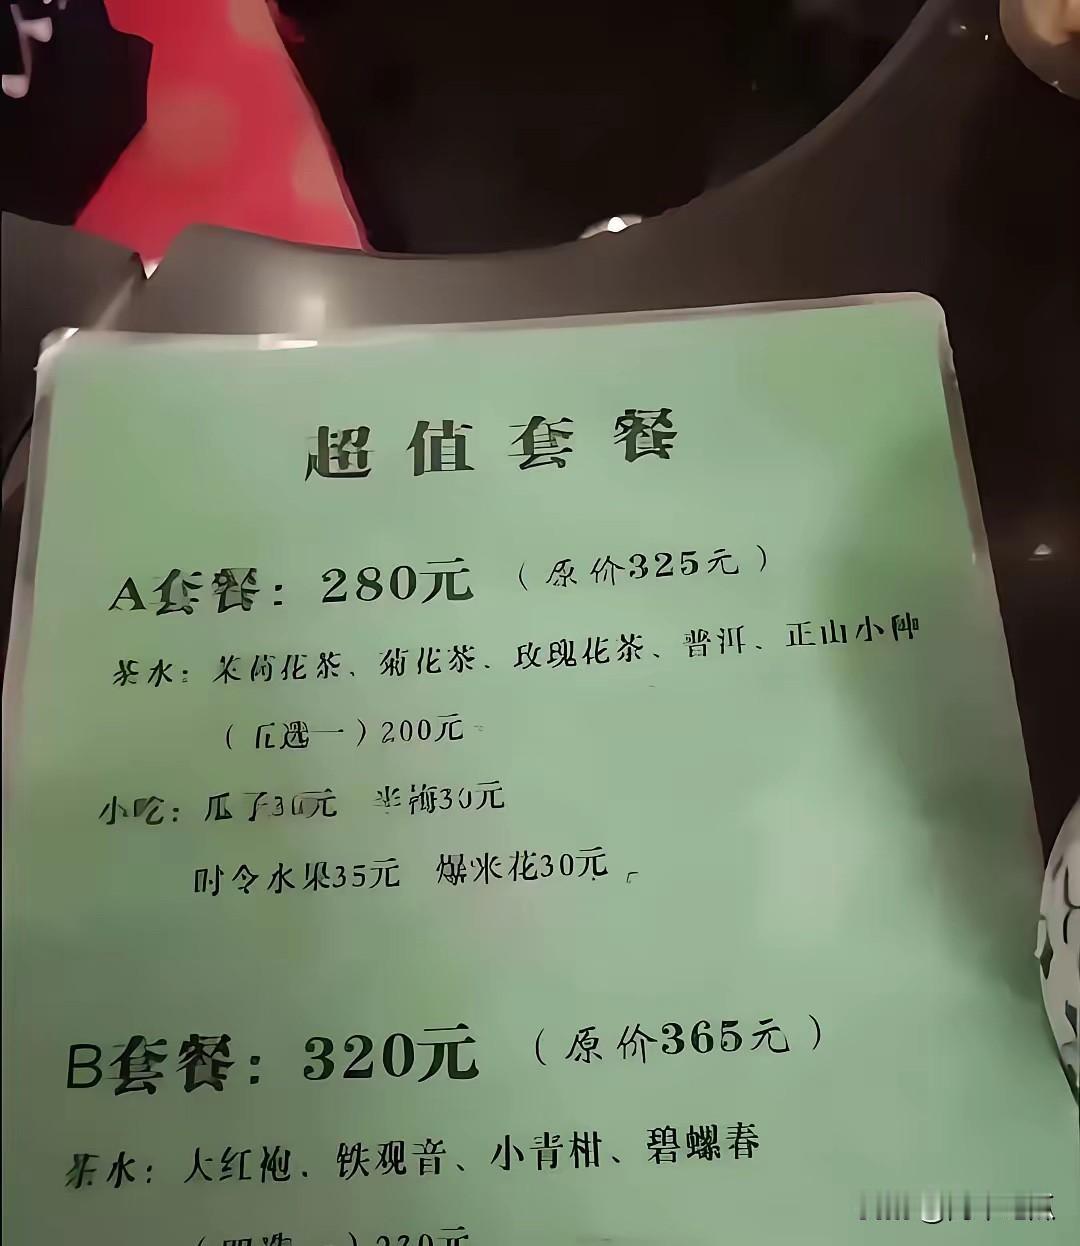 超值套餐
A套餐：280元（原价325元）
茶水：茉荷花茶、菊花茶、玫瑰花茶、普洱、正山小种
（五选一）200元
小吃：瓜子30元 半梅30元
时令水果35元 爆米花30元
B套餐：320元（原价365元）
茶水：大红袍、铁观音、小青柑、碧螺春
（四选一）230元